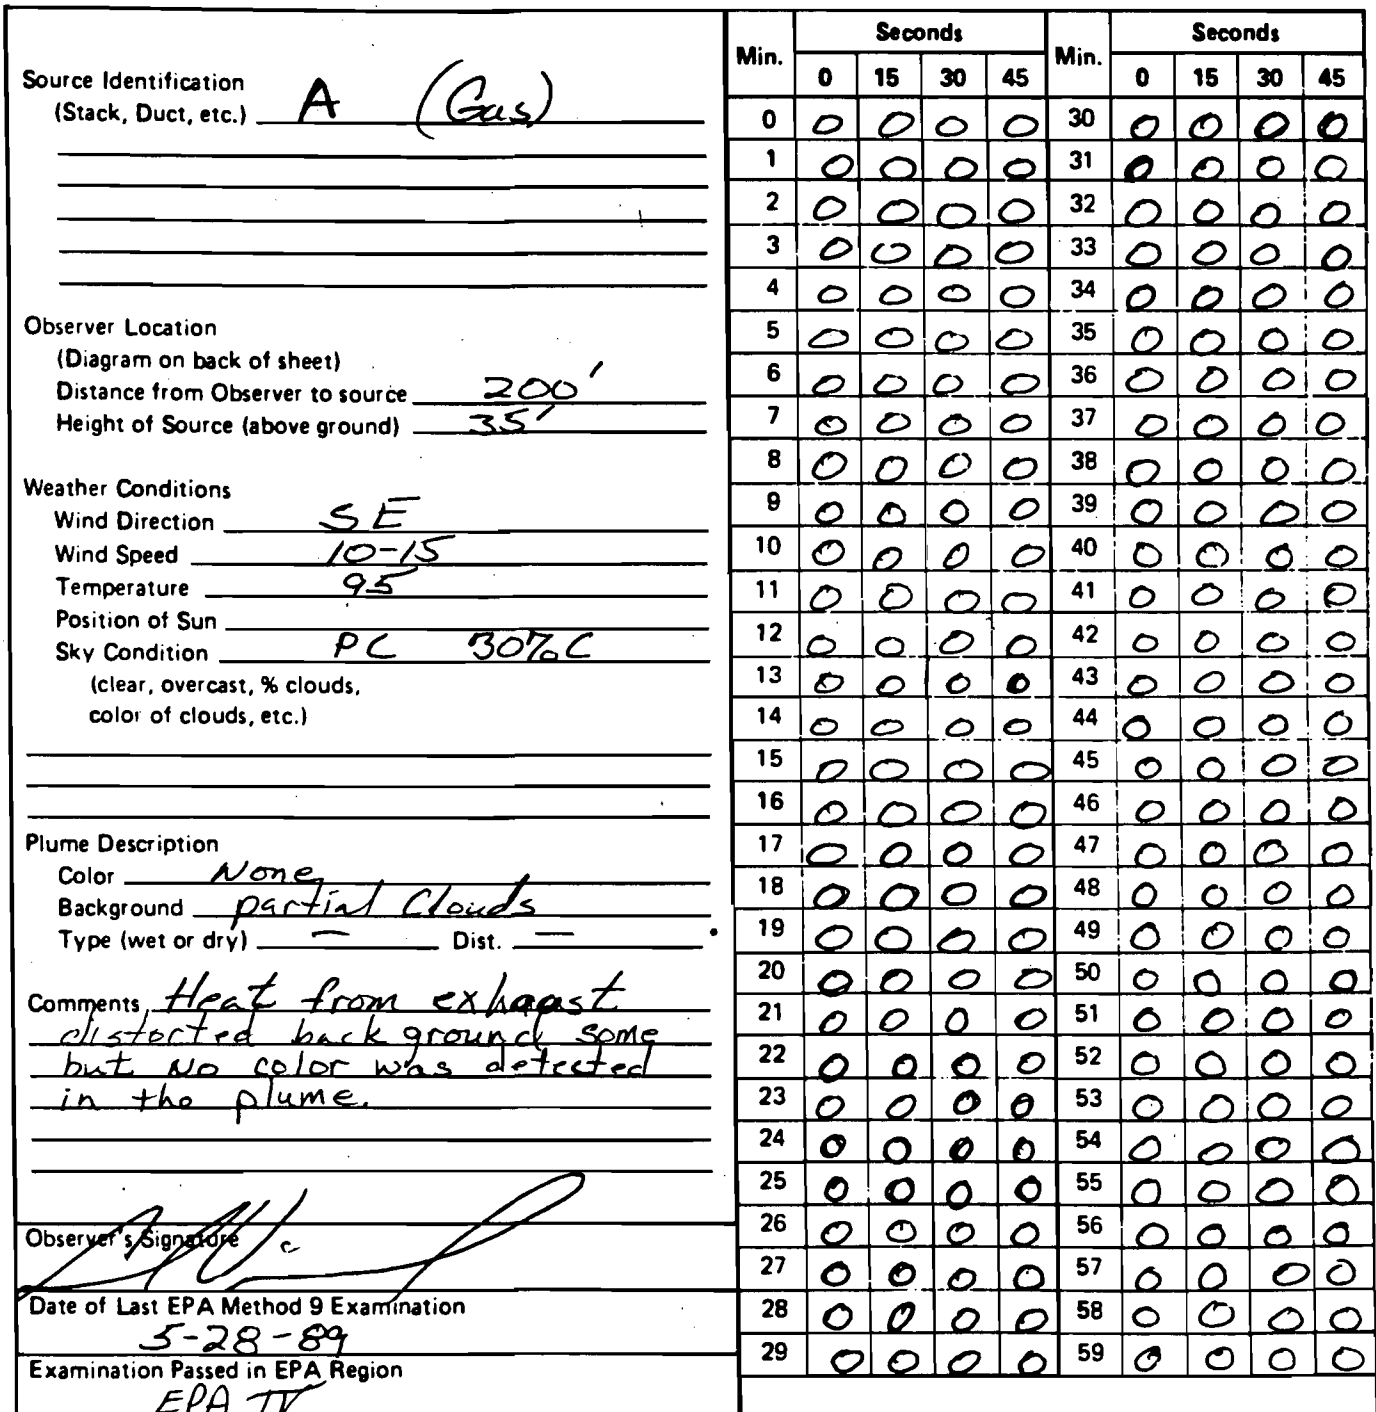 Source Identification
(Stack, Duct, etc.) A (Gas)
Observer Location
(Diagram on back of sheet)
Distance from Observer to source 200'
Height of Source (above ground) 35'
Weather Conditions
Wind Direction SE
Wind Speed 10-15
Temperature 95
Position of Sun
Sky Condition PC 30% C
(clear, overcast, % clouds,
color of clouds, etc.)
Plume Description
Color None
Background partial Clouds
Type (wet or dry) — Dist. —
Comments Heat from exhaust
distorted background some
but No color was detected
in the plume.
Observer's Signature
Date of Last EPA Method 9 Examination
5-28-89
Examination Passed in EPA Region
EPA IV
Min. Seconds Min. Seconds
0 15 30 45 0 15 30 45
0 0 0 0 0 30 0 0 0 0
1 0 0 0 0 31 0 0 0 0
2 0 0 0 0 32 0 0 0 0
3 0 0 0 0 33 0 0 0 0
4 0 0 0 0 34 0 0 0 0
5 0 0 0 0 35 0 0 0 0
6 0 0 0 0 36 0 0 0 0
7 0 0 0 0 37 0 0 0 0
8 0 0 0 0 38 0 0 0 0
9 0 0 0 0 39 0 0 0 0
10 0 0 0 0 40 0 0 0 0
11 0 0 0 0 41 0 0 0 0
12 0 0 0 0 42 0 0 0 0
13 0 0 0 0 43 0 0 0 0
14 0 0 0 0 44 0 0 0 0
15 0 0 0 0 45 0 0 0 0
16 0 0 0 0 46 0 0 0 0
17 0 0 0 0 47 0 0 0 0
18 0 0 0 0 48 0 0 0 0
19 0 0 0 0 49 0 0 0 0
20 0 0 0 0 50 0 0 0 0
21 0 0 0 0 51 0 0 0 0
22 0 0 0 0 52 0 0 0 0
23 0 0 0 0 53 0 0 0 0
24 0 0 0 0 54 0 0 0 0
25 0 0 0 0 55 0 0 0 0
26 0 0 0 0 56 0 0 0 0
27 0 0 0 0 57 0 0 0 0
28 0 0 0 0 58 0 0 0 0
29 0 0 0 0 59 0 0 0 0